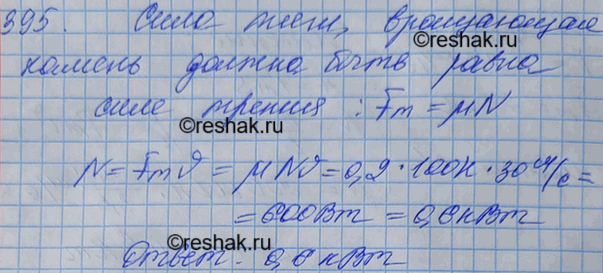 395. Сила тяги, вращающая
камень должна быть равна
силе трения: Fт = μN
©reshak.ru
©reshak.ru
N = Fтϑ = μNϑ = 0,2·100Н·30 м/с =
= 600Вт = 0,6 кВт
©reshak.ru
Ответ: 0,6 кВт